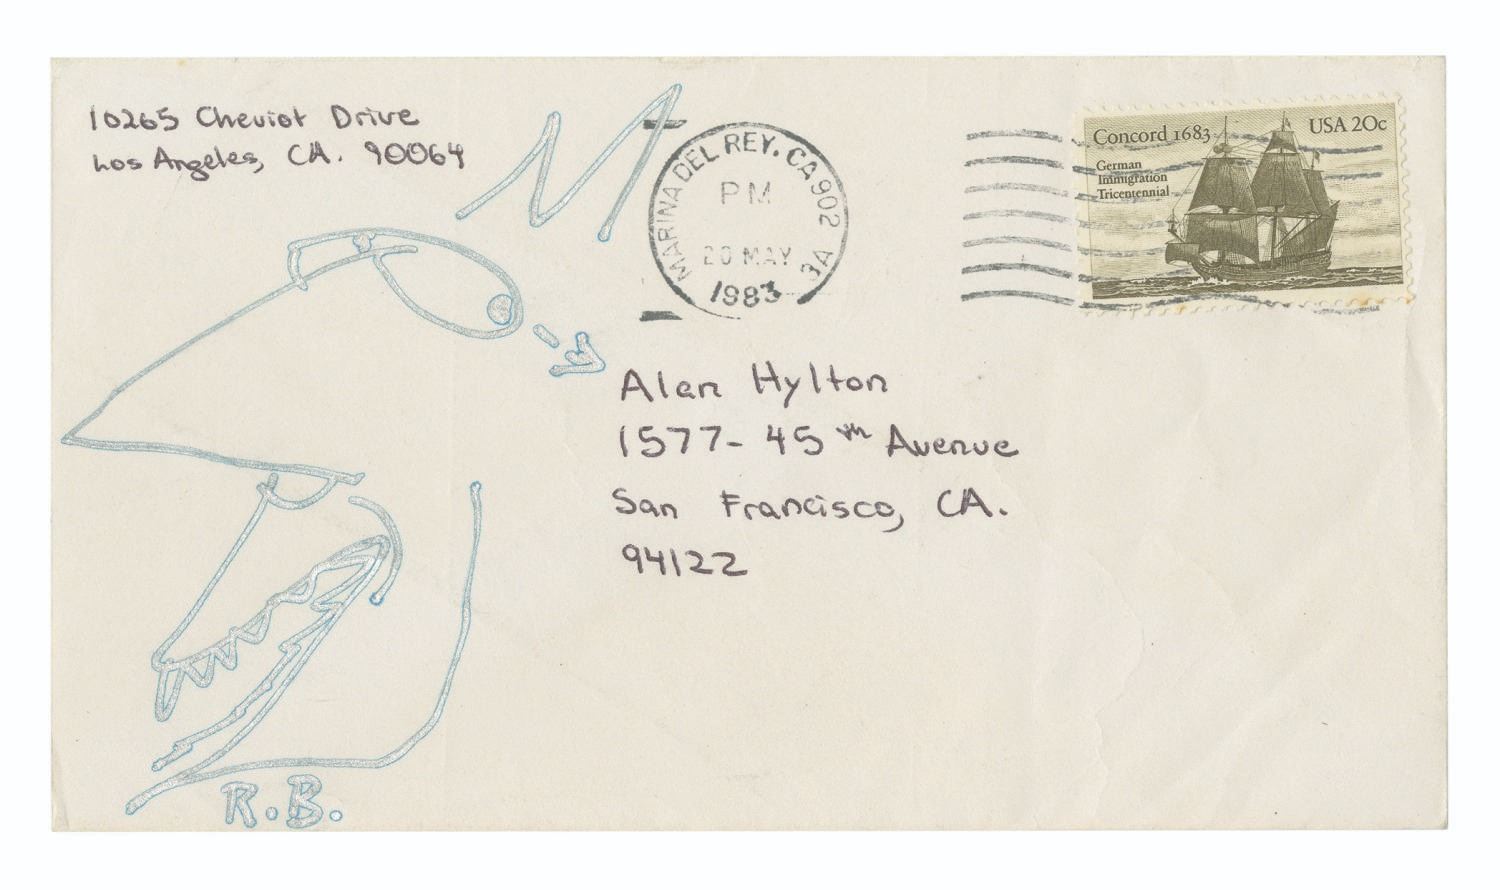 10265 Cheviot Drive
Los Angeles, CA. 90064
MARINA DEL REY. CA 902
PM
20 MAY
1983
3A
Concord 1683
USA 20c
German
Immigration
Tricentennial
Alan Hylton
1577- 45th Avenue
San Francisco, CA.
94122
R.B.